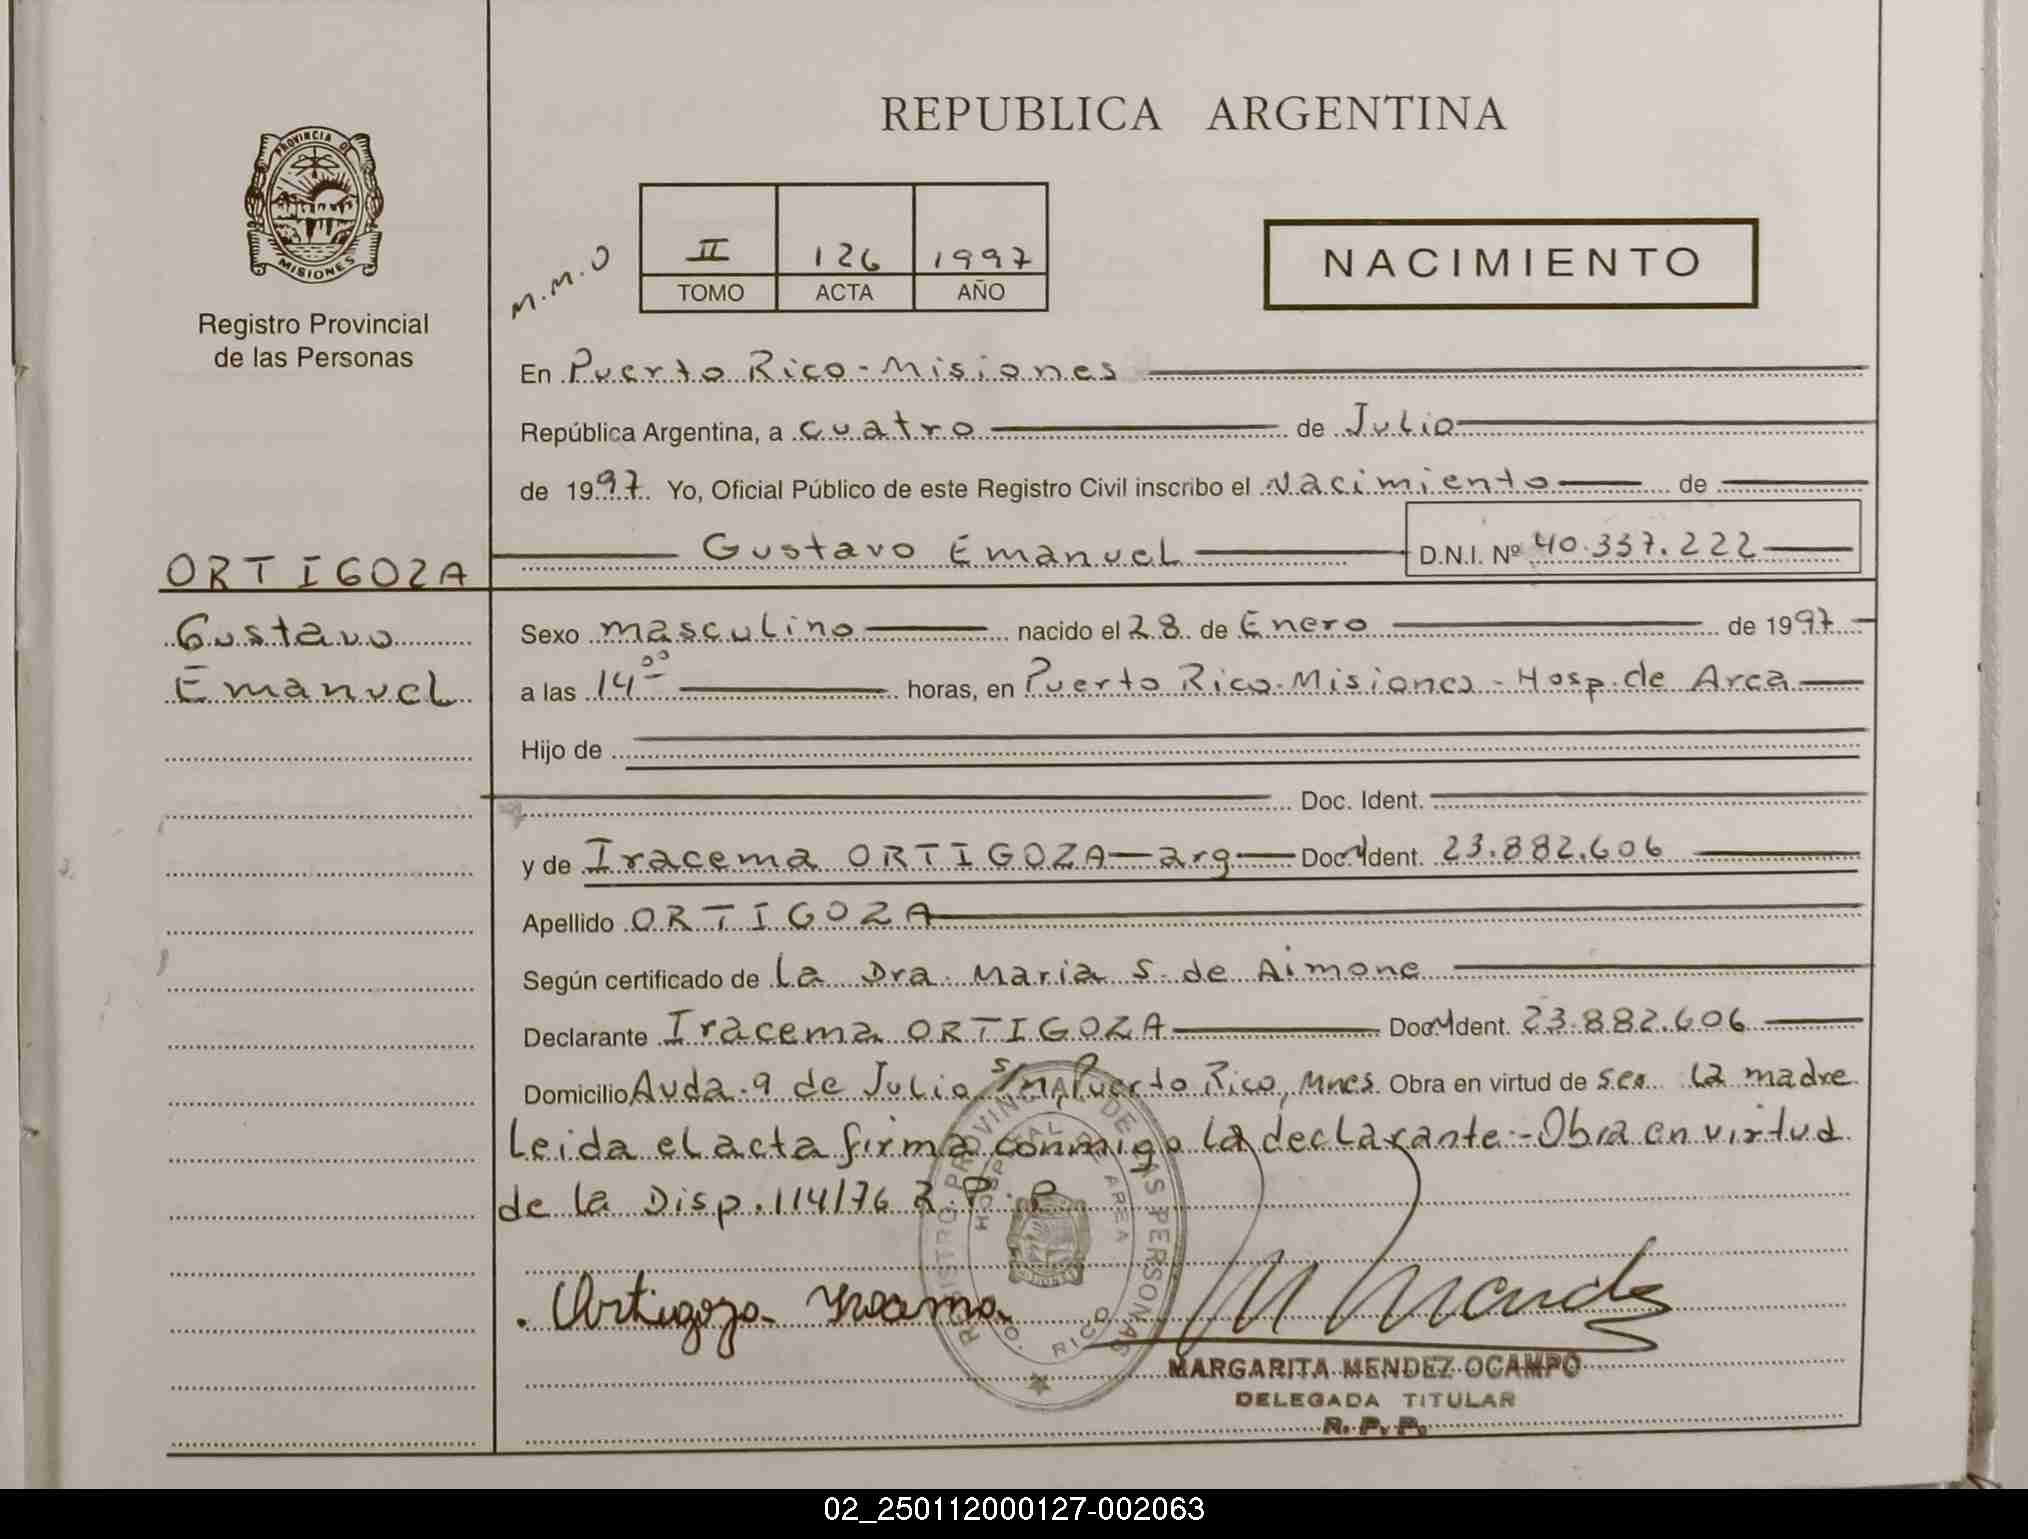 REPUBLICA ARGENTINA
PROVINCIA DE
MISIONES
Registro Provincial
de las Personas
M.M.O
II 126 1997
TOMO ACTA AÑO
NACIMIENTO
En Puerto Rico - Misiones
República Argentina, a cuatro de Julio
de 1997. Yo, Oficial Público de este Registro Civil inscribo el Nacimiento de
ORTIGOZA
Gustavo
Emanuel
Gustavo Emanuel D.N.I. Nº 40.337.222
Sexo masculino nacido el 28 de Enero de 1997
a las 14 00 horas, en Puerto Rico-Misiones - Hosp. de Area
Hijo de
Doc. Ident.
y de Iracema ORTIGOZA - arg - Doc. Ident. 23.882.606
Apellido ORTIGOZA
Según certificado de la Dra. Maria S. de Aimone
Declarante Iracema ORTIGOZA Doc. Ident. 23.882.606
Domicilio Avda. 9 de Julio s/n, Puerto Rico, Mnes. Obra en virtud de ser la madre
Leida el acta firma conmigo la declarante.- Obra en virtud
de la Disp. 114/76 R.P.P.
REGISTRO PROVINCIAL DE LAS PERSONAS
HOSPITAL DE AREA
PTO. RICO
Ortigoza Iracema
M Mendez
MARGARITA MENDEZ OCAMPO
DELEGADA TITULAR
R. P. P.
02_250112000127-002063